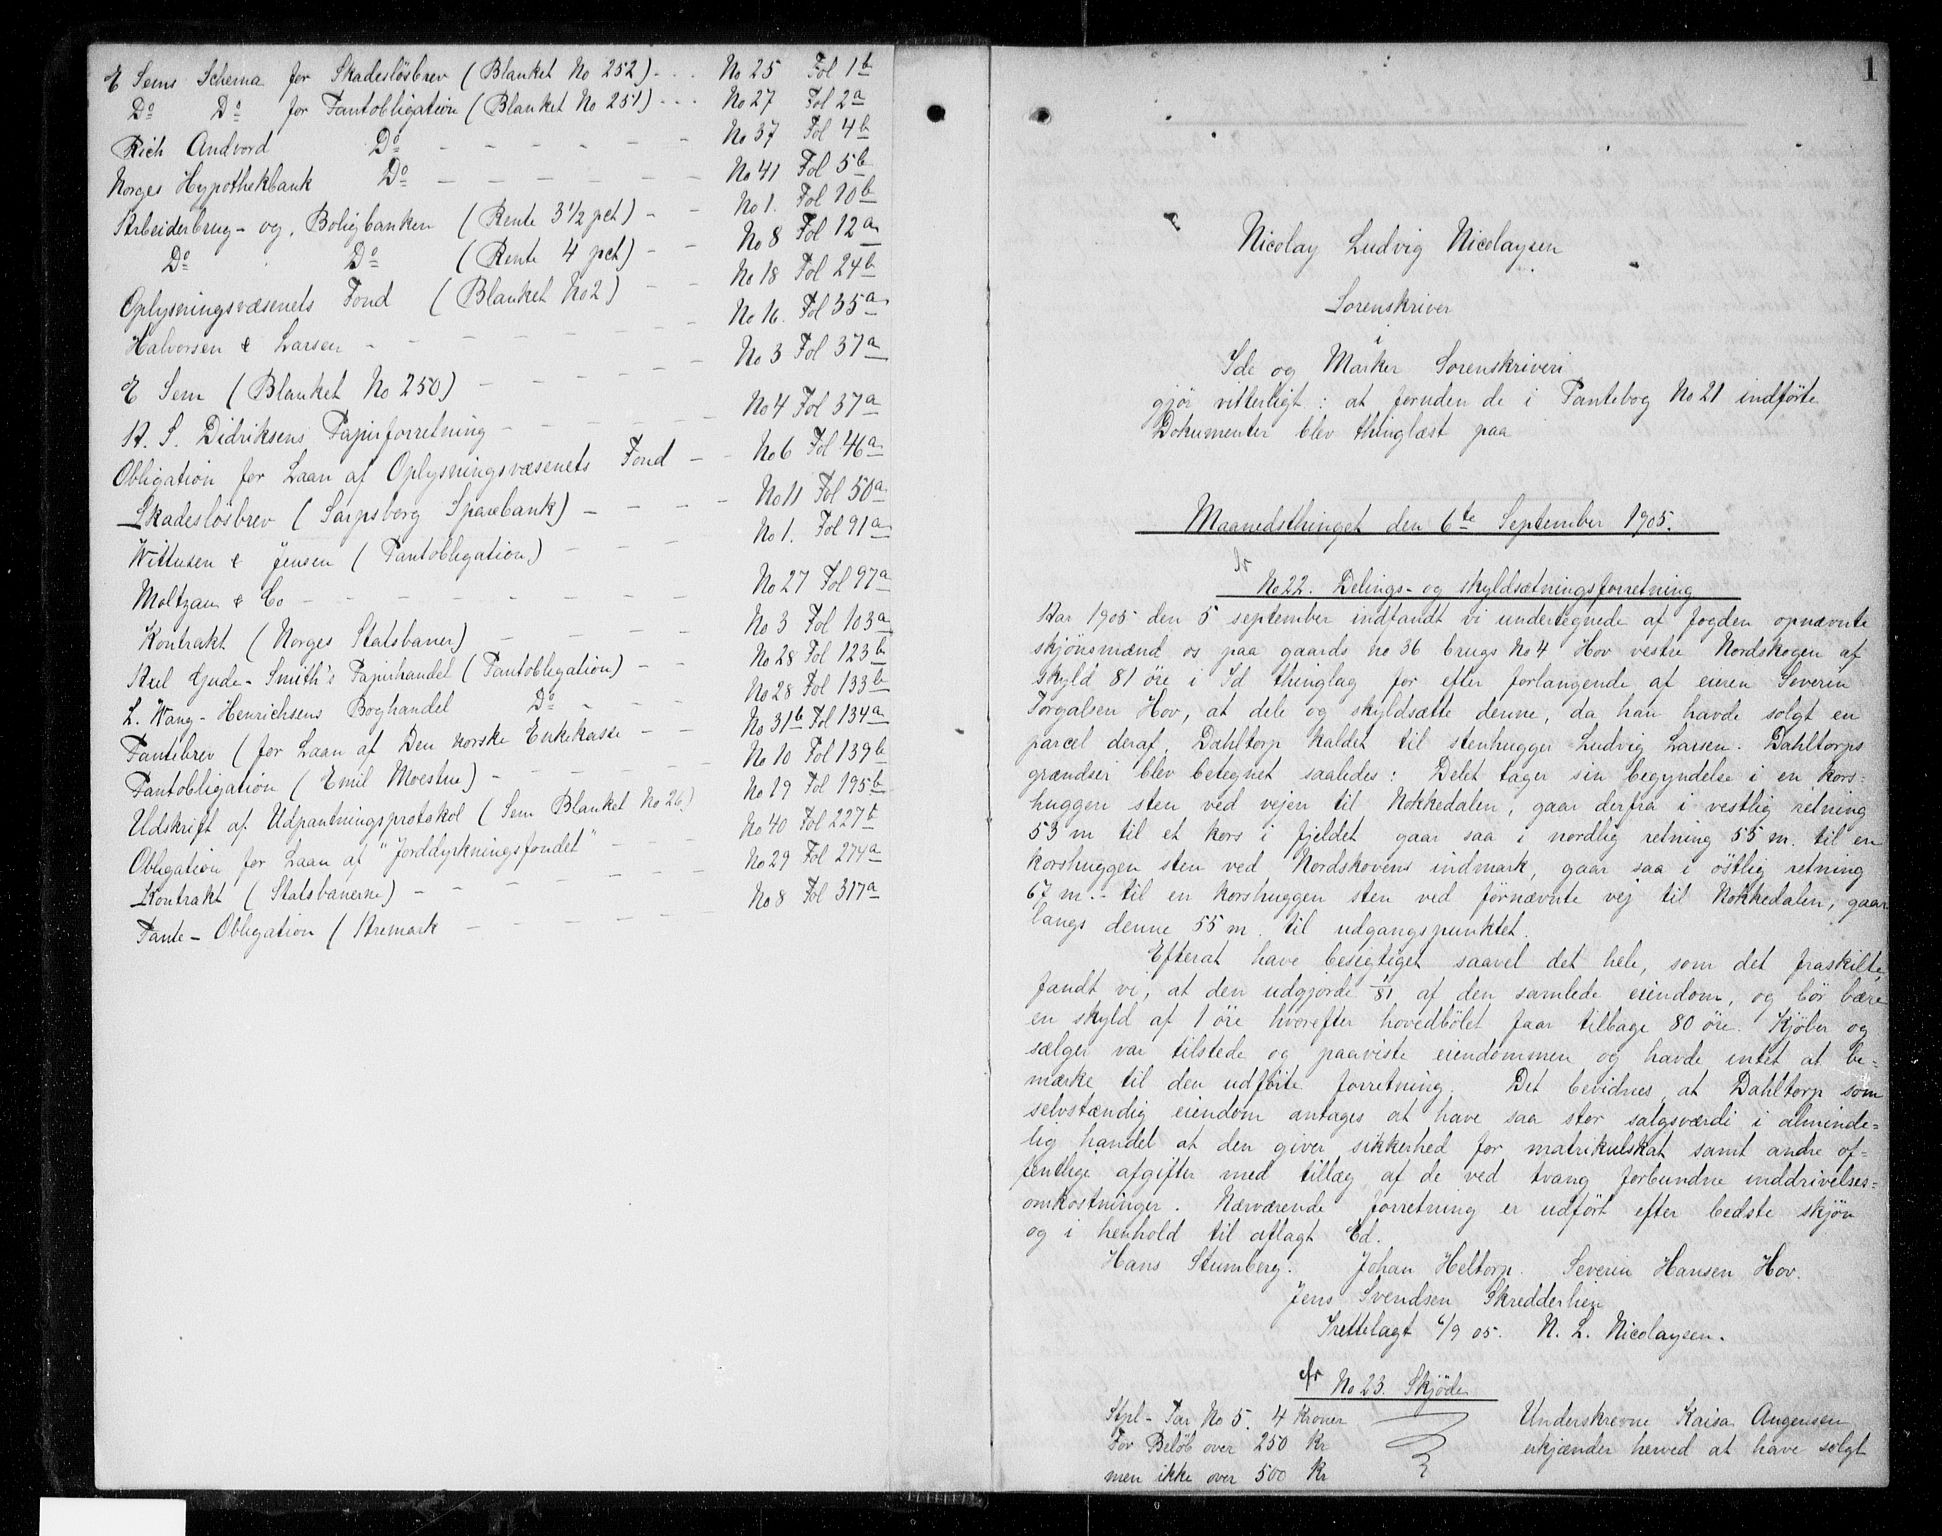 E Sems Schema for Skadesløsbrev (Blanket No 252) - . . No 25 Fol 1b
Do Do for Pantobligation (Blanket No 251) - - - No 27 Fol 2a
Rich Andvord Do - - - - - - No 37 Fol 4b
Norges Hypothekbank Do - - - - - - No 41 Fol 5b
Arbeiderbrug- og Boligbanken (Rente 3 1/2 pct) - - No 1. Fol 10b
Do Do (Rente 4 pct) - - No 8 Fol 12a
Oplysningsvæsenets Fond (Blanket No 2) - - No 18 Fol 24b
Halvorsen & Larsen - - - - - - No 16. Fol 35a
E Sem (Blanket No 250) - - - - - No 3 Fol 37a
A. S. Didriksens Papirforretning - - - - No 4 Fol 37a
Obligation for Laan af Oplysningsvæsenets Fond - - No 6 Fol 46a
Skadesløsbrev (Sarpsborg Sparebank) - - - - No 11 Fol 50a
Wittusen & Jensen (Pantobligation) - - - No 1. Fol 91a
Moltzau & Co - - - - - - - No 27 Fol 97a
Kontrakt (Norges Statsbaner) - - - - No 3 Fol 103a
Aul Gude - Smith's Papirhandel (Pantobligation) - - No 28 Fol 123b
L. Wang - Henrichsens Boghandel Do - - - No 28 Fol 133b
Pantebrev (for Laan af Den norske Enkekasse - - No 31b Fol 134a
Pantobligation (Emil Moestue) - - - - - No 10 Fol 139b
Udskrift af Udpantningsprotokol (Sem Blanket No 26.) No 19 Fol 195b
Obligation for Laan af "Jorddyrkningsfondet" - - - No 40 Fol 227b
Kontrakt (Statsbanerne) - - - - - - No 29 Fol 274a
Pante - Obligation (Aremark - - - - - No 8 Fol 317a
1
Nicolay Ludvig Nicolaysen
Sorenskriver
i
Ide og Marker Sorenskriveri
gjør vitterligt: at foruden de i Pantebog No 21 indførte
Dokumenter blev thinglæst paa
Maanedsthinget den 6te September 1905.
No 22. Delings- og skyldsætningsforretning
Aar 1905 den 5 september indfandt vi undertegnede af fogden opnævnte
skjønsmænd os paa gaards no 36 brugs No 4 Hov vestre Nordskogen af
skyld 81 øre i Id thinglag for efter forlangende af eieren Severin
Torgalsen Hov, at dele og skyldsætte denne, da han havde solgt en
parcel deraf, Dahltorp kaldet til stenhugger Ludvig Larsen. Dahltorps
grændser blev betegnet saaledes: Delet tager sin begyndelse i en kors-
huggen sten ved vejen til Nokkedalen, gaar derfra i vestlig retning
53 m til et kors i fjeldet gaar saa i nordlig retning 55 m. til en
korshuggen sten ved Nordskovens indmark, gaar saa i østlig retning
67 m. - til en korshuggen sten ved førnævnte vej til Nokkedalen, gaar
langs denne 55 m. til udgangspunktet.
Efterat have besigtiget saavel det hele, som det fraskilte,
fandt vi, at den udgjorde 1/81 af den samlede eiendom, og bør bære
en skyld af 1 øre hvorefter hovedbølet faar tilbage 80 øre. Kjøber og
sælger var tilstede og paaviste eiendommen og havde intet at be-
mærke til den udførte forretning. Det bevidnes, at Dahltorp som
selvstændig eiendom antages at have saa stor salgsværdi i alminde-
lig handel at den giver sikkerhed for matrikulskat samt andre of-
fentlige afgifter med tillæg af de ved tvang forbundne inddrivelses-
omkostninger. Nærværende forretning er udført efter bedste skjøn
og i henhold til aflagt Ed.
Hans Stumberg. Johan Heltorp. Severin Hansen Hov.
Jens Svendsen Skredderlien
Irettelagt 6/9 05. N. L. Nicolaysen.
No 23. Skjøde
Stpl - Pap No 5. 4 Kroner
For Beløb over 250 Kr
men ikke over 500 Kr
Underskrevne Kaisa Augensen
erkjænder herved at have solgt